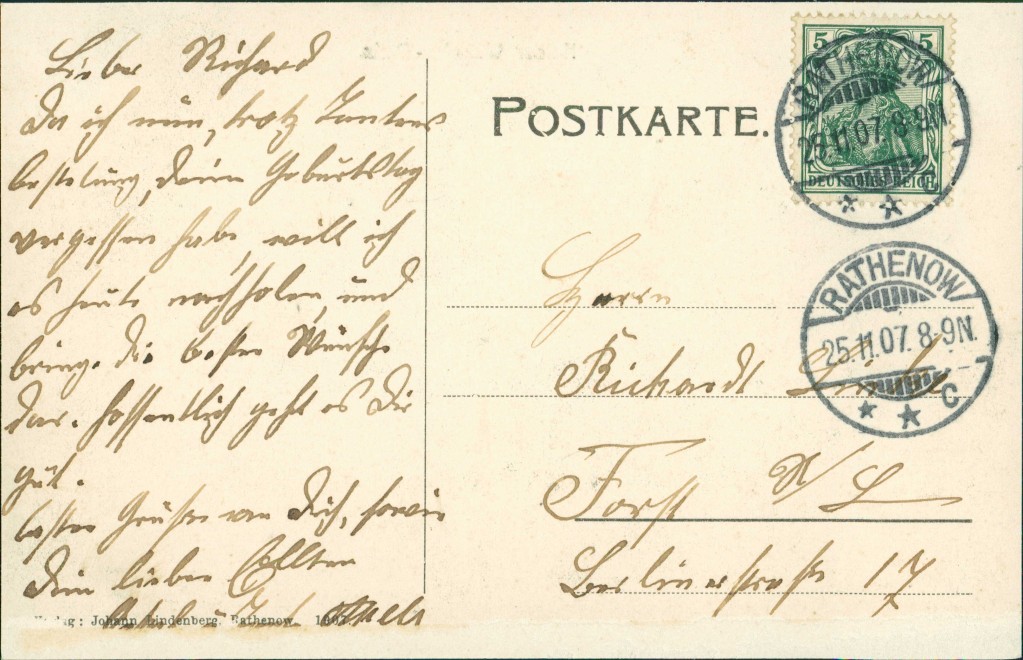 Lieber Richard
Da ich nun, trotz Tantens
bestelung, deinn Geburtstag
vergessen habe, will ich
es heute nachholen und
bringe die besten Wünsche
dar. Hoffentlich geht es Dir
gut.
besten Grüßen von Dich, sowie
Dein lieben Eltern
POSTKARTE.
5 5
DEUTSCHES REICH
RATHENOW
25.11.07. 8-9N.
C
RATHENOW
25.11.07. 8-9N.
C
Herrn
Richardt
Forst N/L
Berlinerstraße 17
Verlag: Johann Lindenberg, Rathenow